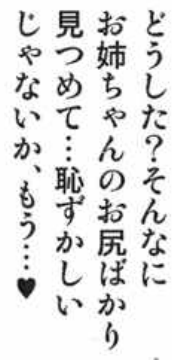 どうした?そんなに
お姉ちゃんのお尻ばかり
見つめて…恥ずかしい
じゃないか、もう…♥